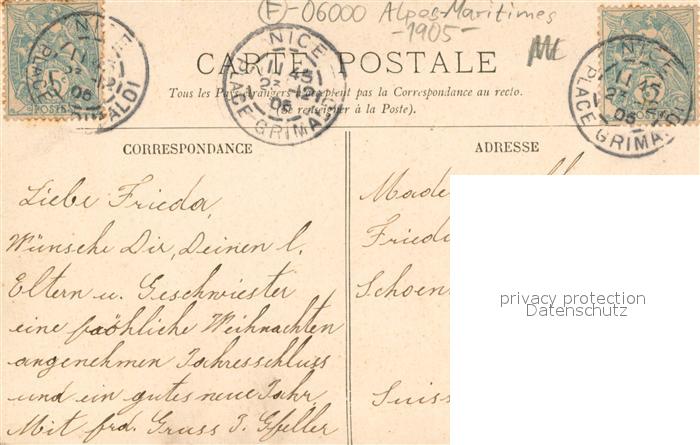 (F)-06000 Alpes-Maritimes
-1905-
CARTE POSTALE
Tous les Pays étrangers n'acceptent pas la Correspondance au recto.
(Se renseigner à la Poste).
NICE
PLACE GRIMALDI
11 45
23 -12
05
NICE
PLACE GRIMALDI
NICE
PLACE GRIMALDI
5
POSTES
5
POSTES
CORRESPONDANCE
Liebe Frieda,
Wünsche Dir, Deinen l.
Eltern u. Geschwister
eine fröhliche Weihnachten
angenehmen Jahresschluss
und ein gutes neue Jahr.
Mit frd. Gruss J. Gfeller
ADRESSE
Made
Frieda
Schoen
Suiss
privacy protection
Datenschutz